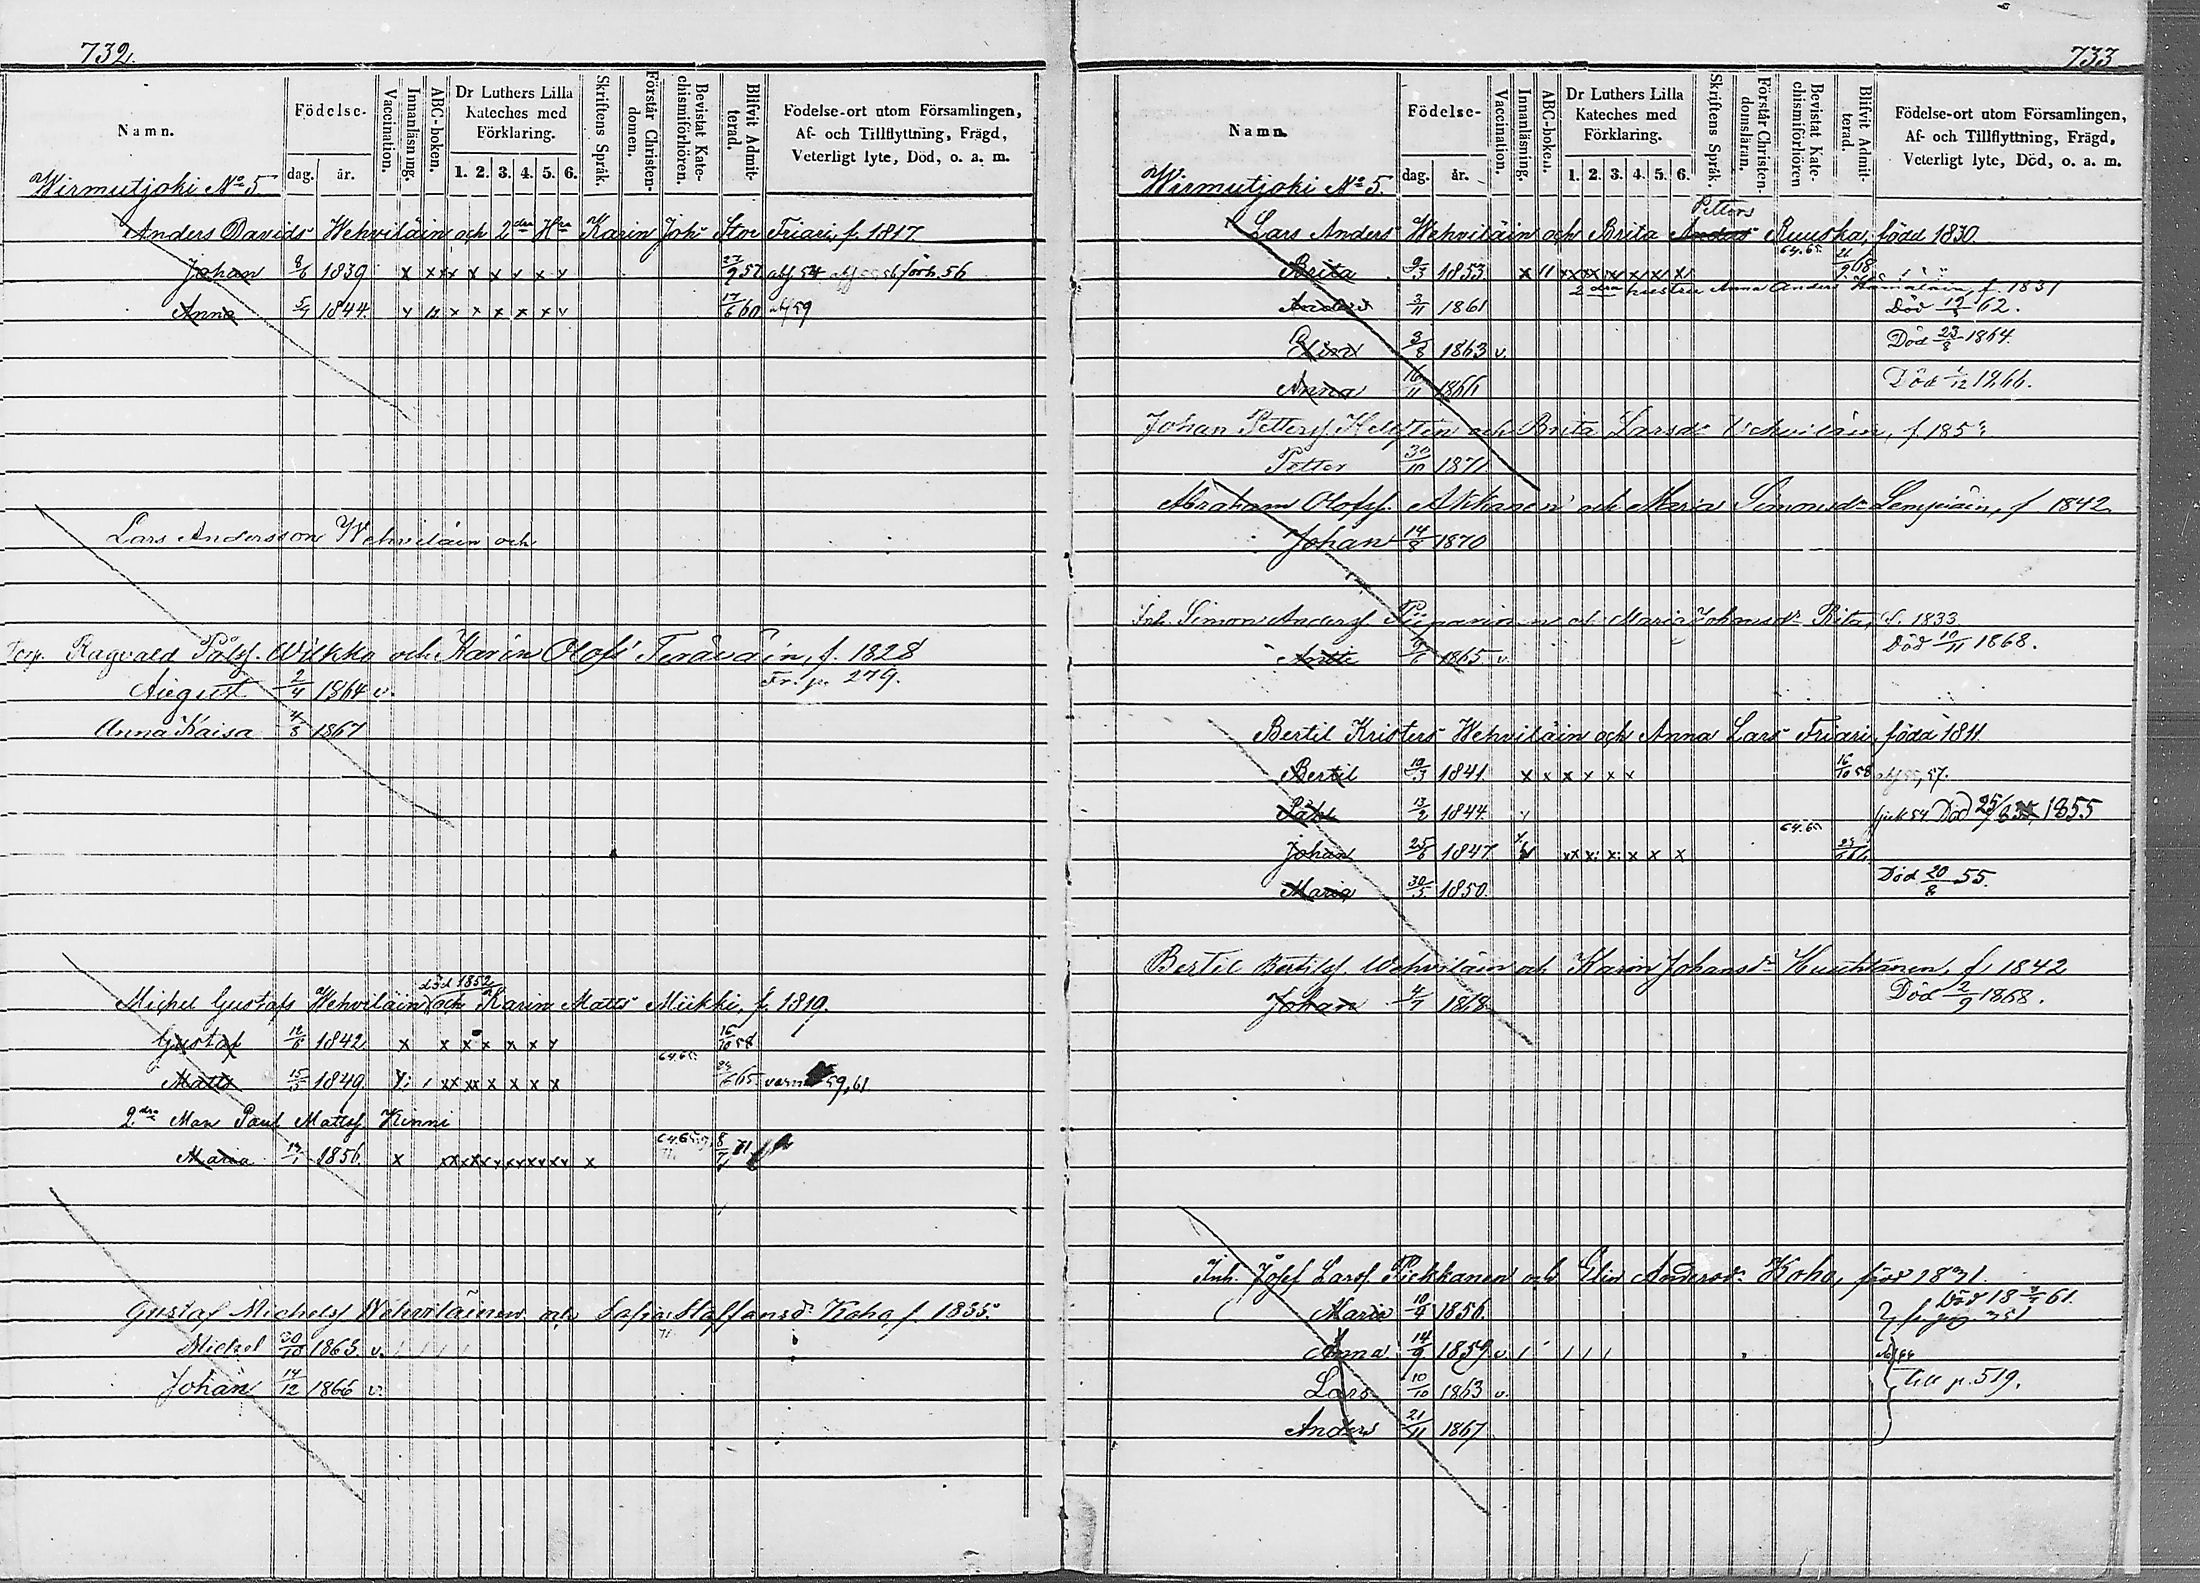 732.
Namn.
Födelse-
dag. år.
Vaccination.
Innanläsning.
ABC-boken.
Dr Luthers Lilla Kateches med Förklaring.
1. 2. 3. 4. 5. 6.
Skriftens Språk.
Förstår Christendomen.
Bevistat Katechismiförhören.
Blifvit Admitterad.
Födelse-ort utom Församlingen, Af- och Tillflyttning, Frägd, Veterligt lyte, Död, o. a. m.
Wirmutjoki No 5
Anders Davids Wehviläin och 2dra Hru Karin Joh Stor Friari, f. 1817.
Johan 8/6 1839 x x x x x x x x x 27/9 57 56
Anna 1844 x x x x x x 17/6 60 59
Lars Andersson Wehviläin och
Torp. Ragvald Pålss. Wilkko och Karin Olofs Teräväin, f. 1828
Fr. p. 279.
August 2/4 1864 v.
Anna Kaisa 4/8 1867
död 1852
Michel Gustafs Wehviläin och Karin Matts Miikki, f. 1819.
Gustaf 12/6 1842 x x x x x x x 16/10 58
64.65
Matts 1849 xx xx x x x x 65 59, 61.
2dra Man Paul Mattss. Kinni
Maria 1856. x x x 71
Gustaf Michelss Wehviläinen och Sofia Staffansdr Koho f. 1835.
Michel 20/10 1863. v.
Johan 14/12 1866 v.
733
Namn.
Födelse-
dag. år.
Vaccination.
Innanläsning.
ABC-boken.
Dr Luthers Lilla Kateches med Förklaring.
1. 2. 3. 4. 5. 6.
Skriftens Språk.
Förstår Christendomsläran.
Bevistat Katechismiförhören
Blifvit Admitterad.
Födelse-ort utom Församlingen, Af- och Tillflyttning, Frägd, Veterligt lyte, Död, o. a. m.
Wirmutjoki No 5.
Petters
Lars Anders Wehviläin och Brita Anders Ruuska, född 1830.
64.65
Brita 9/3 1853 x 11 xx xx x x x x 68
2dra hustru Anna Anders Hämäläin, f. 1831
Anders 3/11 1861 Död 62.
Elin 3/8 1863 v. Död 23/8 1864.
Anna 16/11 1866 Död 1/12 1866.
Johan Petterss. och Brita Larsdr Vehviläin, f. 185
Petter 30/10 1871
Abraham Olofss. Akkanen och Maria Simonsdr Lempiäin, f 1842.
Johan 14/8 1870
Inh. Simon Anderss och Maria Johansdr f. 1833.
Död 10/11 1868.
1865 v.
Bertil Kristers Wehviläin och Anna Lars Friari, född 1811.
Bertil 19/3 1841. x x x x x x 16/10 58 57.
Påhl 13/2 1844. Död 25/8 1855
64.65
Johan 25/6 1847 xx x: x: x x x
Maria 30/5 1850. Död 20/8 55.
Bertil Bertilss. Wehviläin och Karin Johansdr Huuhtanen, f. 1842
Johan 4/7 1868 Död 2/9 1868.
Inh. Josef Larss. Pickkanen och Elin Andersdr Koho, född 1831.
Maria 10/4 1856. Död 18 61.
fr. pag. 351
Anna 14/9 1859 v. 1 1 1 1
Lars 10/10 1863 v. till p. 519.
Anders 21/11 1867